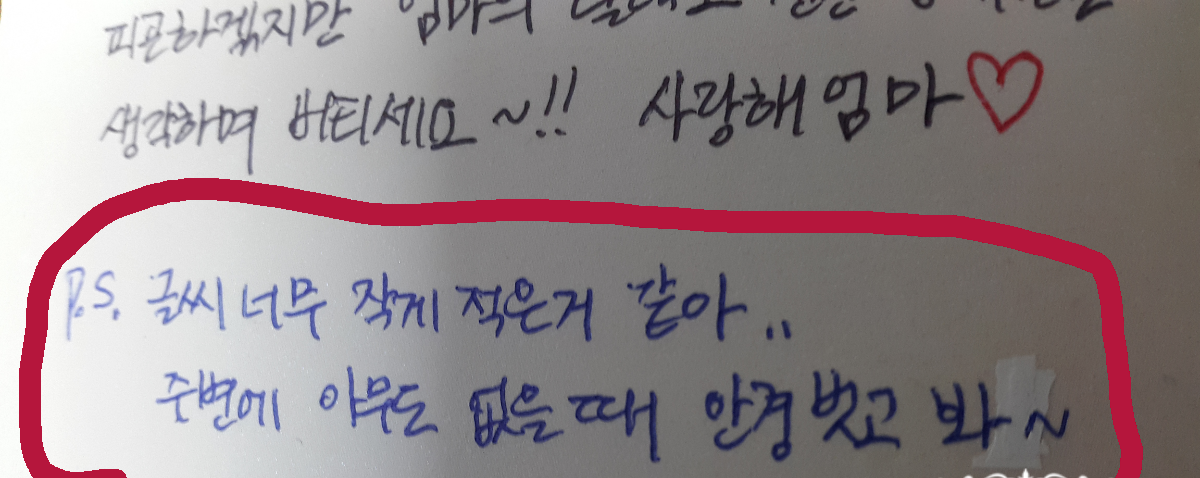 피곤하겠지만 엄마의
생각하며 버티세요~!! 사랑해 엄마♡
P.S. 글씨 너무 작게 적은거 같아..
주변에 아무도 없을때 안경 벗고 봐~